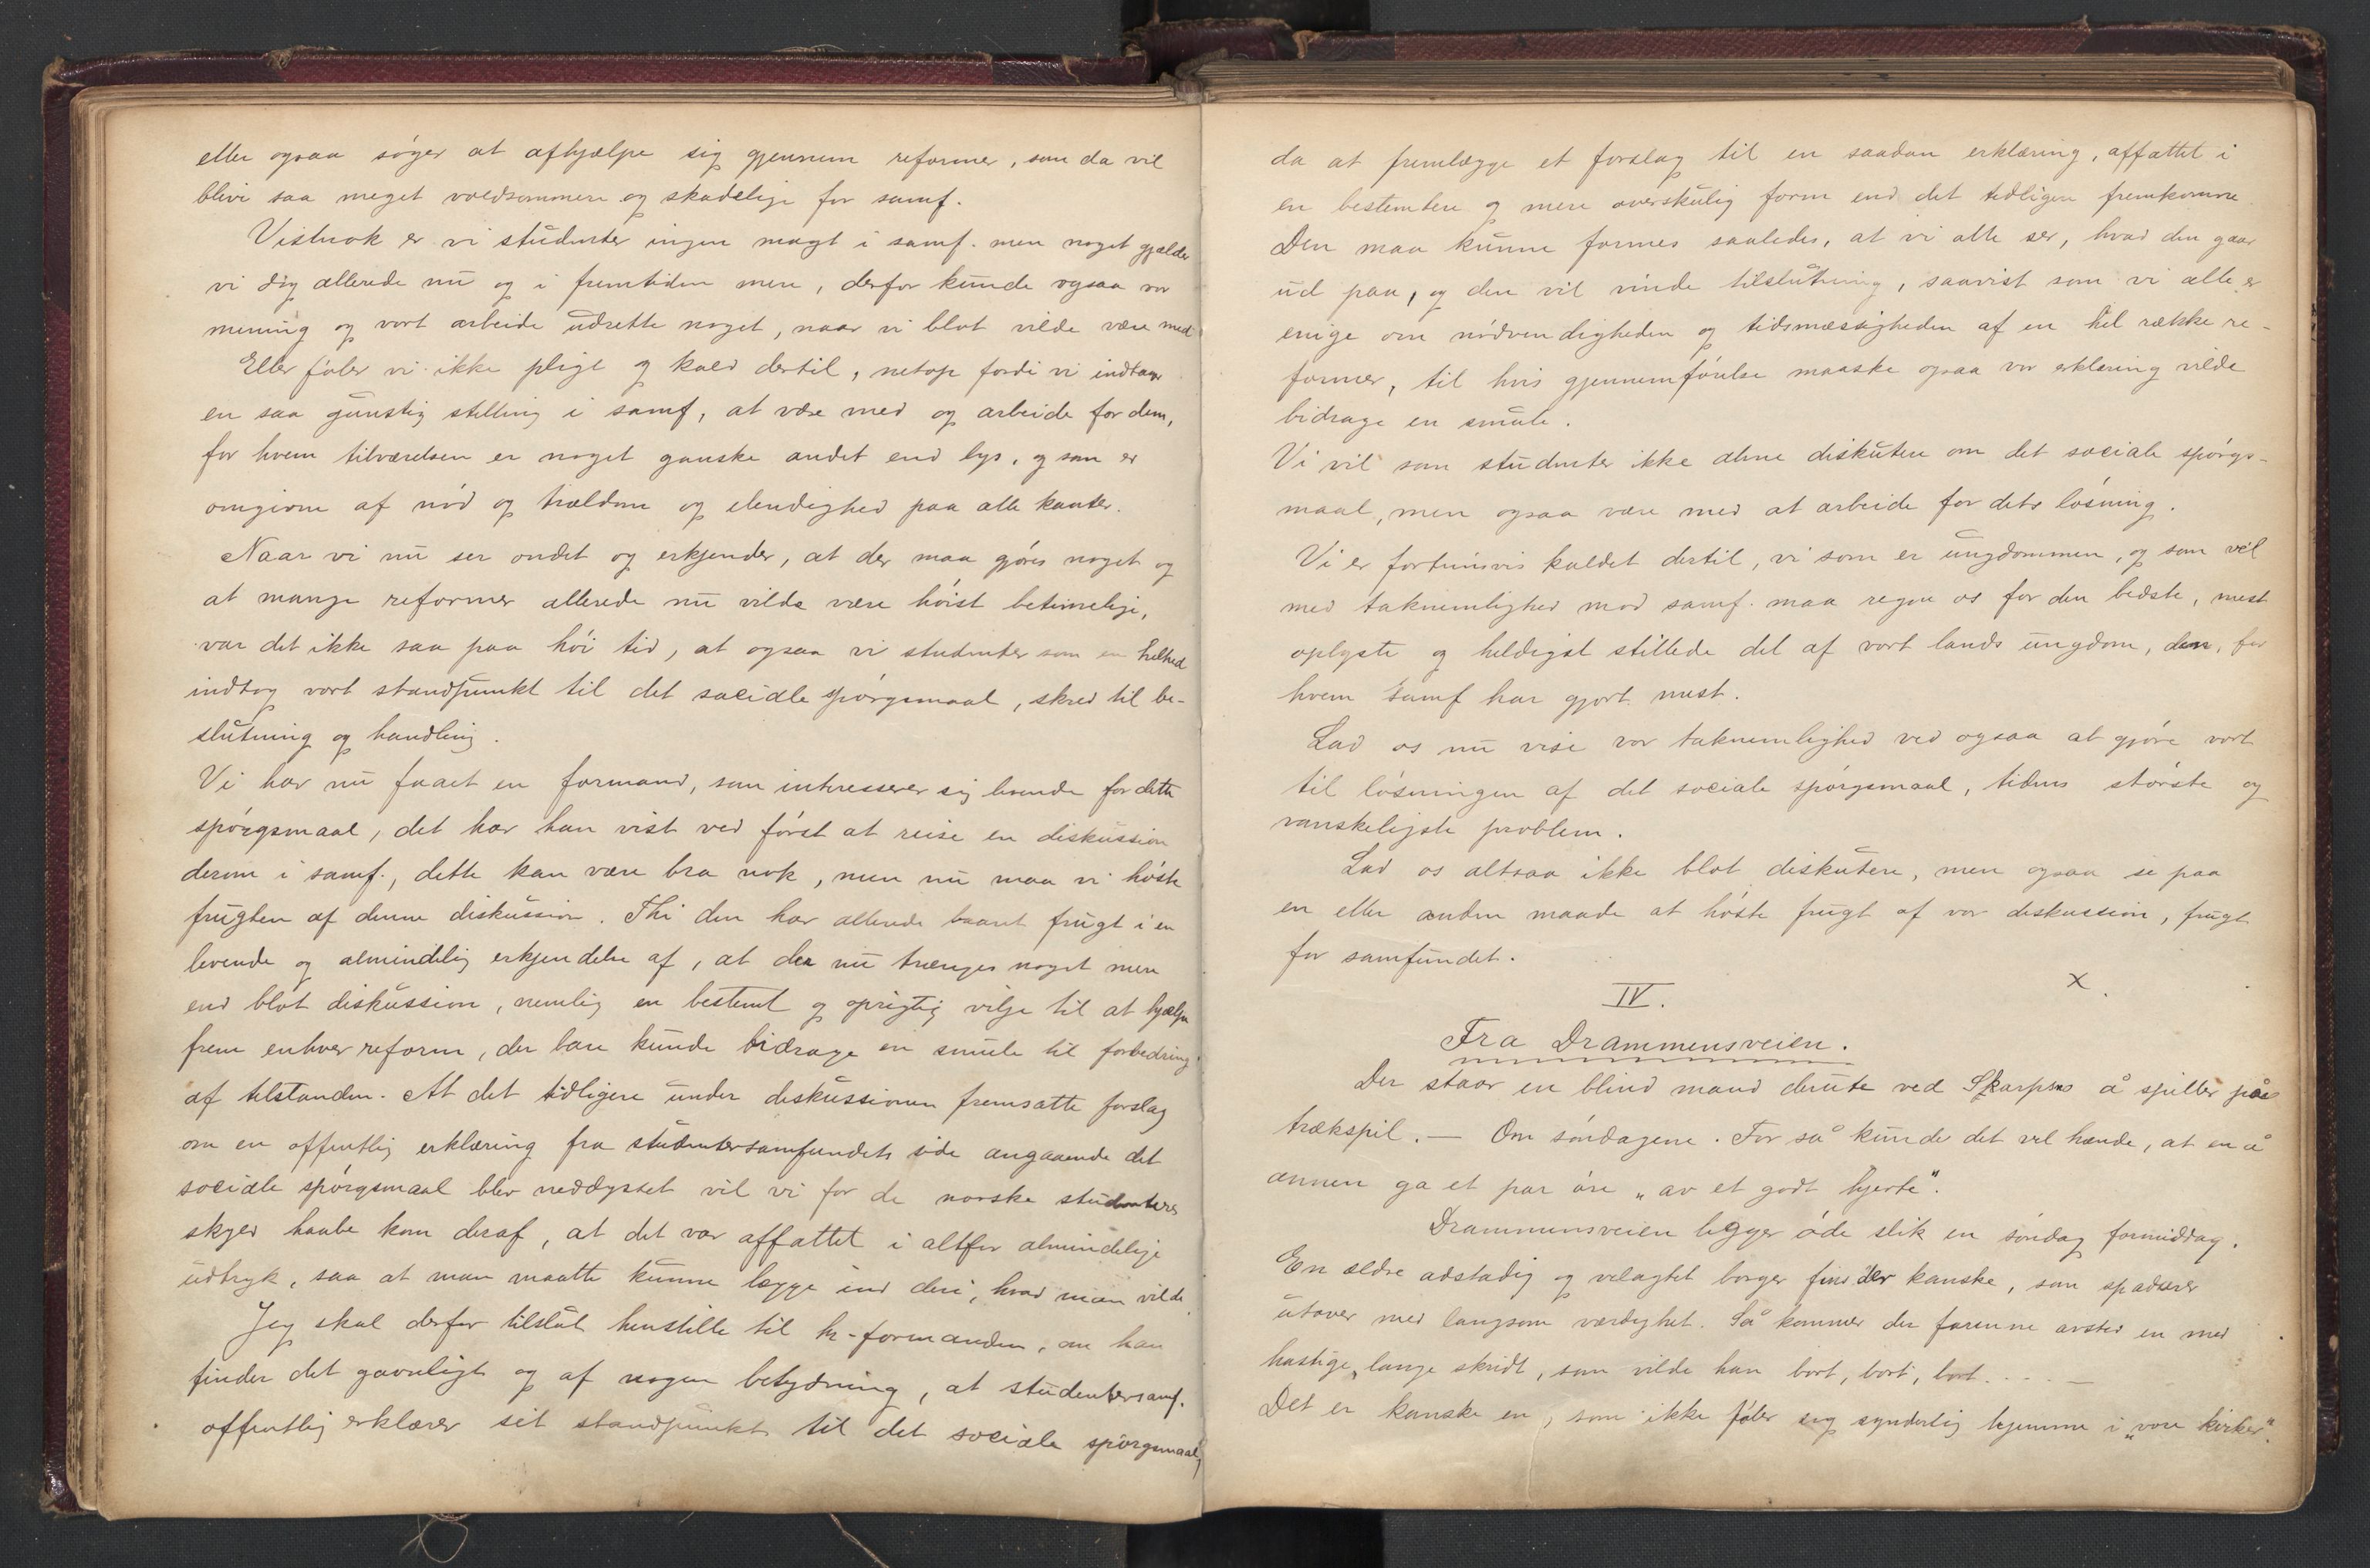 eller ogsaa søger at afhjælpe sig gjennem reformer, som da vil
blive saa meget voldsommere og skadelige for samf.
Vistnok er vi studenter ingen magt i samf. men noget gjælder
vi dog allerede nu og i fremtiden mere, derfor kunde ogsaa vor
mening og vort arbeide udrette noget, naar vi blot vilde være med
Eller føler vi ikke pligt og kald dertil, netop fordi vi indtar
en saa gunstig stilling i samf, at være med og arbeide for dem,
for hvem tilværelsen er noget ganske andet end lys, og som er
omgivne af nød og trældom og elendighed paa alle kanter.
Naar vi nu ser ondet og erkjender, at der maa gjøres noget og
at mange reformer allerede nu vilde være høist betimelige,
var det ikke saa paa høi tid, at ogsaa vi studenter som en helhed
indtog vort standpunkt til det sociale spørgsmaal, skred til be-
slutning og handling.
Vi har nu faaet en formand, som interesserer sig levende for dette
spørgsmaal, det har han vist ved først at reise en diskussion
derom i samf., dette kan være bra nok, men nu maa vi høste
frugten af denne diskussion. Thi den har allerede baaret frugt i en
levende og almindelig erkjendelse af, at der nu trænges noget mere
end blot diskussion, nemlig en bestemt og oprigtig vilje til at hjælpe
frem enhver reform, der bare kunde bidrage en smule til forbedring
af tilstanden. At det tidligere under diskussionen fremsatte forslag
om en offentlig erklæring fra studentersamfundets side angaaende det
sociale spørgsmaal blev neddysset vil vi for de norske studenters
skyld haabe kom deraf, at det var affattet i altfor almindelige
udtryk, saa at man maatte kunne lægge ind deri, hvad man vilde.
Jeg skal derfor tilslut henstille til hr-formanden, om han
finder det gavnligt og af nogen betydning, at studentersamf.
offentlig erklærer sit standpunkt til det sociale spørgsmaal,
da at fremlægge et forslag til en saadan erklæring, affattet i
en bestemtere og mere overskulig form end det tidligere fremkomne.
Den maa kunne formes saaledes, at vi alle ser, hvad den gaar
ud paa, og den vil vinde tilslutning, saavist som vi alle er
enige om nødvendigheden og tidsmæssigheden af en hel række re-
former, til hvis gjennemførelse maaske ogsaa vor erklæring vilde
bidrage en smule.
Vi vil som studenter ikke alene diskutere om det sociale spørgs-
maal, men ogsaa være med at arbeide for dets løsning.
Vi er fortrinsvis kaldet dertil, vi som er ungdommen, og som vel
med taknemlighed mod samf. maa regne os for den bedste, mest
oplyste og heldigst stillede del af vort lands ungdom, dem, for
hvem samf har gjort mest.
Lad os nu vise vor taknemlighed ved ogsaa at gjøre vort
til løsningen af det sociale spørgsmaal, tidens største og
vanskeligste problem.
Lad os altsaa ikke blot diskutere, men ogsaa se paa
en eller anden maade at høste frugt af vor diskussion, frugt
for samfundet.
x.
IV.
Fra Drammensveien.
Der staar en blind mand derute ved Skarpsno å spiller på
trækspil. — Om søndagene. For så kunde det vel hænde, at en å
annen ga et par øre „av et godt hjerte".
Drammensveien ligger øde slik en søndag formiddag.
En ældre adstadig og velagtet borger fins der kanske, som spadserer
utover med langsom værdighet. Så kommer der farenne avsted en med
hastige, lange skridt, som vilde han bort, bort, bort . . . . —
Det er kanske en, som ikke føler sig synderlig hjemme i „vore kirker".